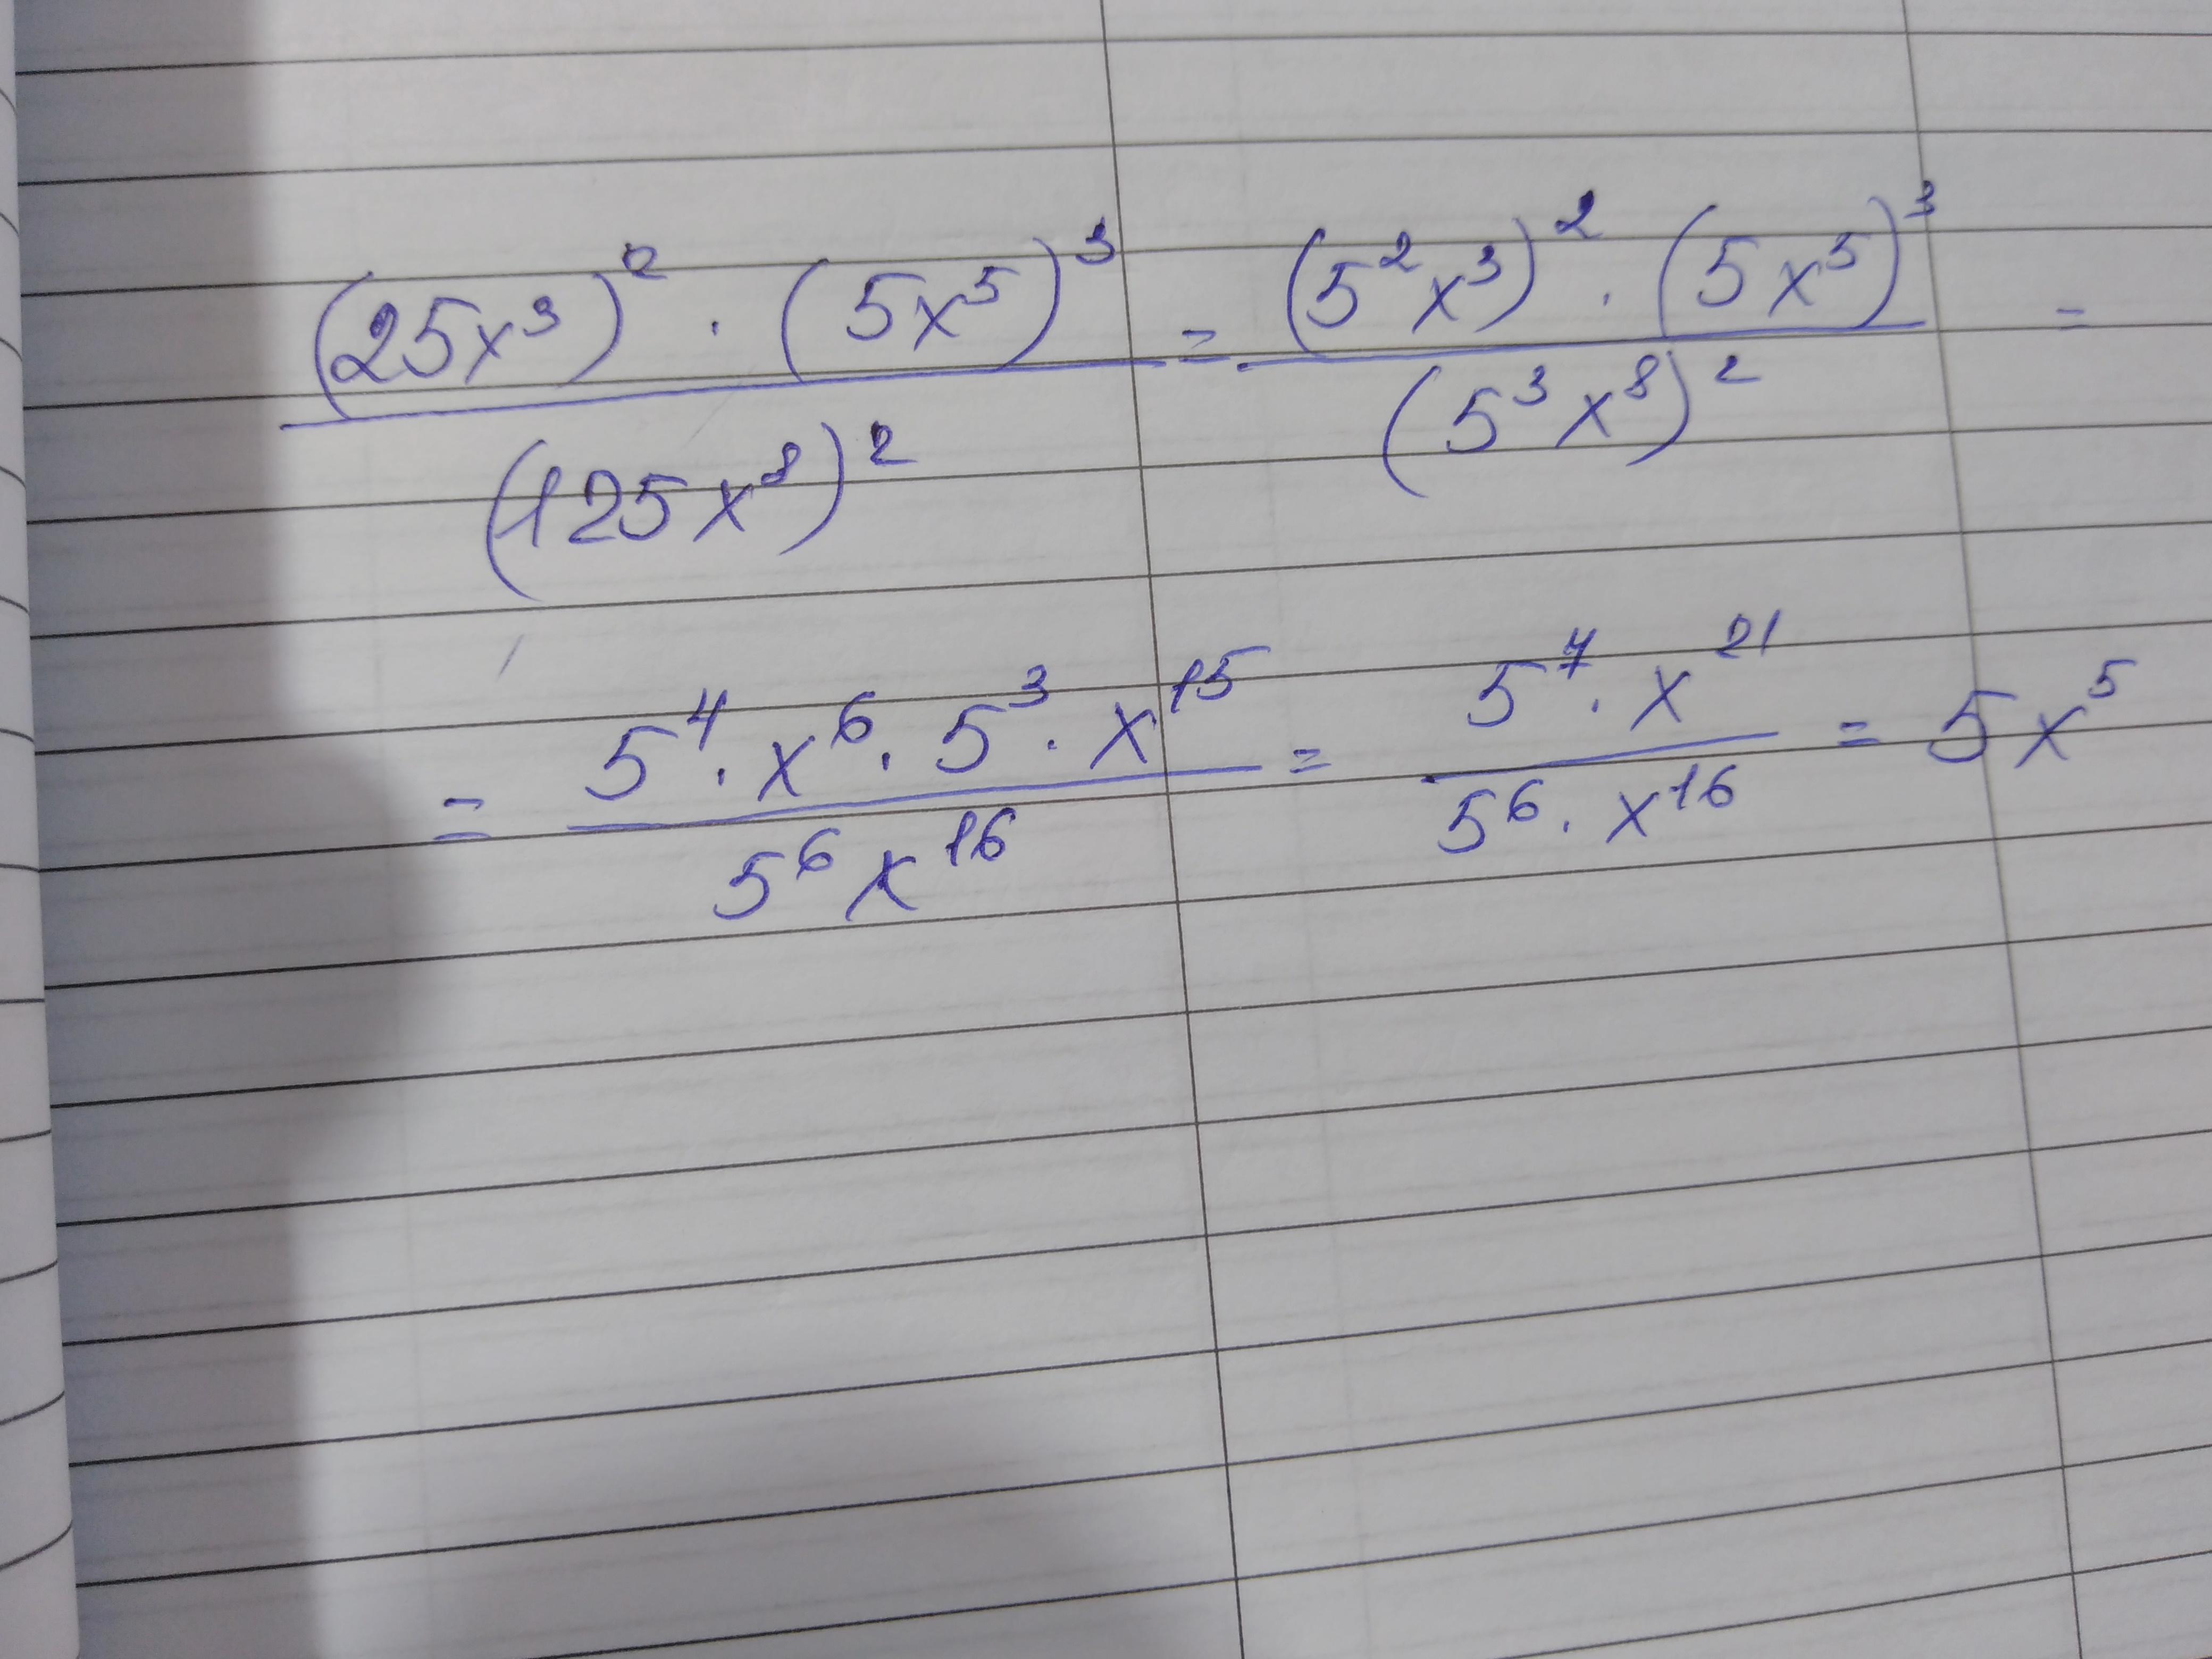 (25x³)² · (5x⁵)³ / (125x⁸)² = (5²x³)² · (5x⁵)³ / (5³x⁸)² =
= 5⁴ · x⁶ · 5³ · x¹⁵ / 5⁶x¹⁶ = 5⁷ · x²¹ / 5⁶ · x¹⁶ = 5x⁵